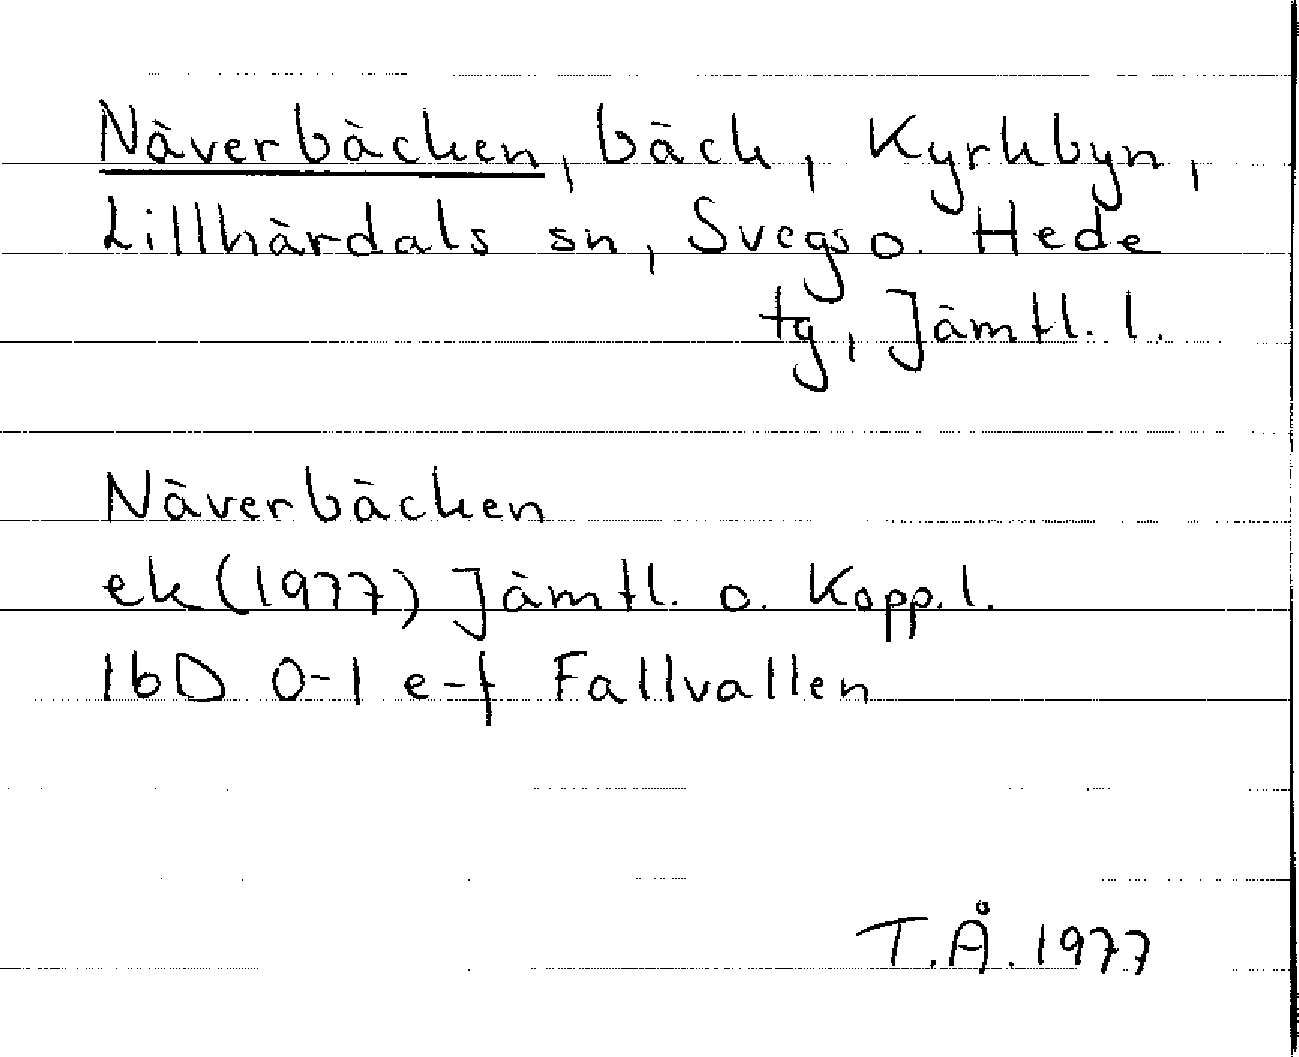 Näverbäcken, bäck, Kyrkbyn,
Lillhärdals sn, Svegs o. Hede
tg, Jämtl. l.
Näverbäcken
ek (1977) Jämtl. o. Kopp. l.
16D 0-1 e-f Fallvallen
T.Å. 1977